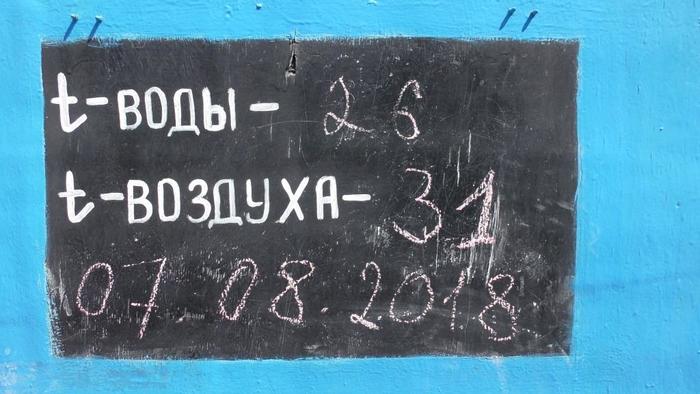 t-ВОДЫ- 26
t-ВОЗДУХА- 31
07.08.2018